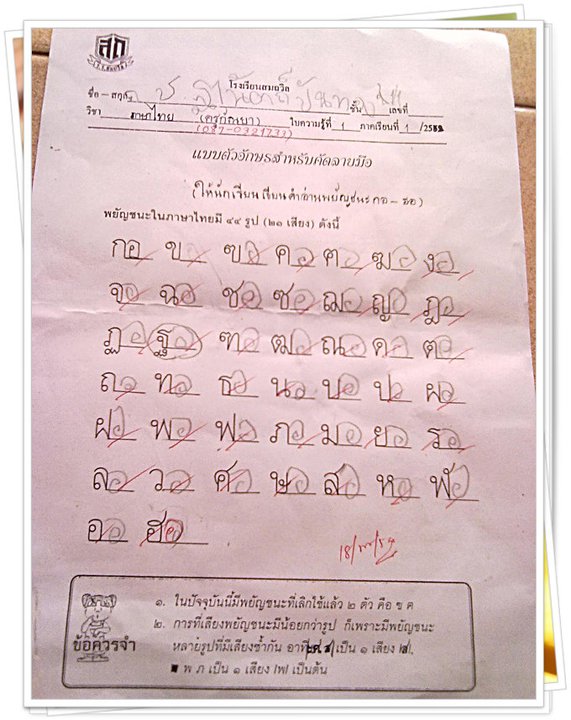 สถ
โรงเรียนสมถวิล
ชื่อ - สกุล ด ช ชั้น เลขที่
วิชา ภาษาไทย (ครูกัณหา) ใบความรู้ที่ 1 ภาคเรียนที่ 1 /2552
(087-0321733)
แบบตัวอักษรสำหรับคัดลายมือ
(ให้นักเรียนเขียนคำอ่านพยัญชนะ กอ - ฮอ)
พยัญชนะในภาษาไทยมี ๔๔ รูป (๒๑ เสียง) ดังนี้
กอ ขอ ฃอ คอ ฅอ ฆอ งอ
จอ ฉอ ชอ ซอ ฌอ ญอ ฎอ
ฏอ ฐอ ฑอ ฒอ ณอ ดอ ตอ
ถอ ทอ ธอ นอ บอ ปอ ผอ
ฝอ พอ ฟอ ภอ มอ ยอ รอ
ลอ วอ ศอ ษอ สอ หอ ฬอ
ออ ฮอ
ข้อควรจำ
๑. ในปัจจุบันนี้มีพยัญชนะที่เลิกใช้แล้ว ๒ ตัว คือ ฃ ฅ
๒. การที่เสียงพยัญชนะมีน้อยกว่ารูป ก็เพราะมีพยัญชนะ
หลายรูปที่มีเสียงซ้ำกัน อาทิ เป็น ๑ เสียง
■ พ ภ เป็น ๑ เสียง /พ/ เป็นต้น